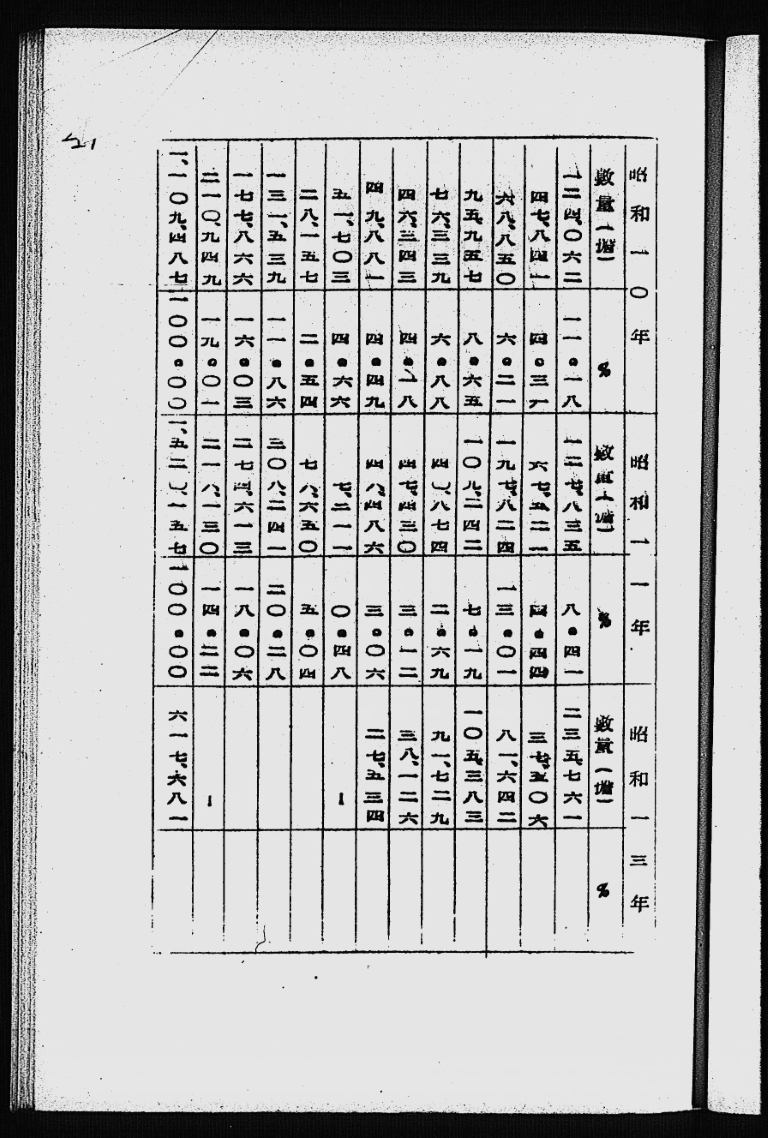 昭和一〇年 昭和一一年 昭和一三年
數量(擔) % 數量(擔) % 數量(擔) %
一二四、〇六二 一一・一八 一二七、八三五 八・四一 二三五、七六一
四七、八四一 四・三一 四・四四 三七、五〇六
六八、八五〇 六・二一 一九七、八二四 一三・〇一 八一、六四二
九五、九五七 八・六五 一〇九、二四二 七・一九 一〇五、三八三
七六、三三九 六・八八 四〇、八七四 二・六九 九一、七二九
四六、三四三 四・一八 四七、四三〇 三・一二 三八、一二六
四九、八八一 四・四九 三・〇六 二七、五三四
五一、七〇三 四・六六 七、二一一 〇・四八 ー
二八、一五七 二・五四 七六、六五〇 五・〇四
一三一、五三九 一一・八六 三〇八、二四一 二〇・二八
一七七、八六六 一六・〇三 二七四、六一三 一八・〇六
二一〇、九四九 一九・〇一 二一六、一三〇 一四・二二 ー
一、一〇九、四八七 一〇〇・〇〇 一、五二〇、一五七 一〇〇・〇〇 六一七、六八一